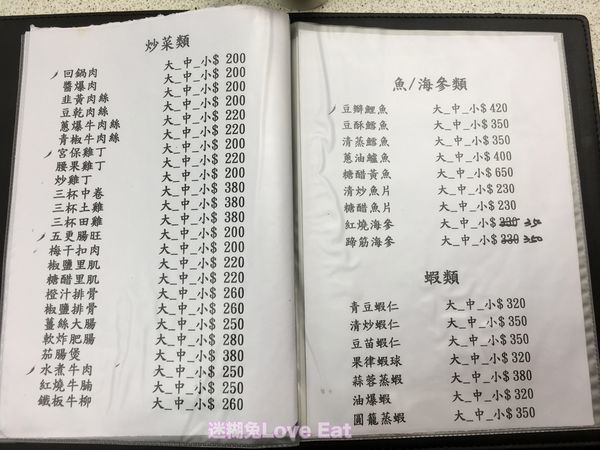 炒菜類
回鍋肉 大_中_小$ 200
醬爆肉 大_中_小$ 200
韭黃肉絲 大_中_小$ 200
豆乾肉絲 大_中_小$ 200
蔥爆牛肉絲 大_中_小$ 220
青椒牛肉絲 大_中_小$ 220
宮保雞丁 大_中_小$ 200
腰果雞丁 大_中_小$ 220
炒雞丁 大_中_小$ 200
三杯中卷 大_中_小$ 380
三杯土雞 大_中_小$ 380
三杯田雞 大_中_小$ 380
五更腸旺 大_中_小$ 200
梅干扣肉 大_中_小$ 200
椒鹽里肌 大_中_小$ 220
糖醋里肌 大_中_小$ 220
橙汁排骨 大_中_小$ 260
椒鹽排骨 大_中_小$ 260
薑絲大腸 大_中_小$ 250
軟炸肥腸 大_中_小$ 280
茄腸煲 大_中_小$ 380
水煮牛肉 大_中_小$ 250
紅燒牛腩 大_中_小$ 250
鐵板牛柳 大_中_小$ 260
魚/海參類
豆瓣鯉魚 大_中_小$ 420
豆酥鱈魚 大_中_小$ 350
清蒸鱈魚 大_中_小$ 350
蔥油鱸魚 大_中_小$ 400
糖醋黃魚 大_中_小$ 650
清炒魚片 大_中_小$ 230
糖醋魚片 大_中_小$ 230
紅燒海參 大_中_小$ 330 350
蹄筋海參 大_中_小$ 330 350
蝦類
青豆蝦仁 大_中_小$ 320
清炒蝦仁 大_中_小$ 350
豆苗蝦仁 大_中_小$ 350
果律蝦球 大_中_小$ 320
蒜蓉蒸蝦 大_中_小$ 380
油爆蝦 大_中_小$ 320
圓籠蒸蝦 大_中_小$ 350
迷糊兔Love Eat